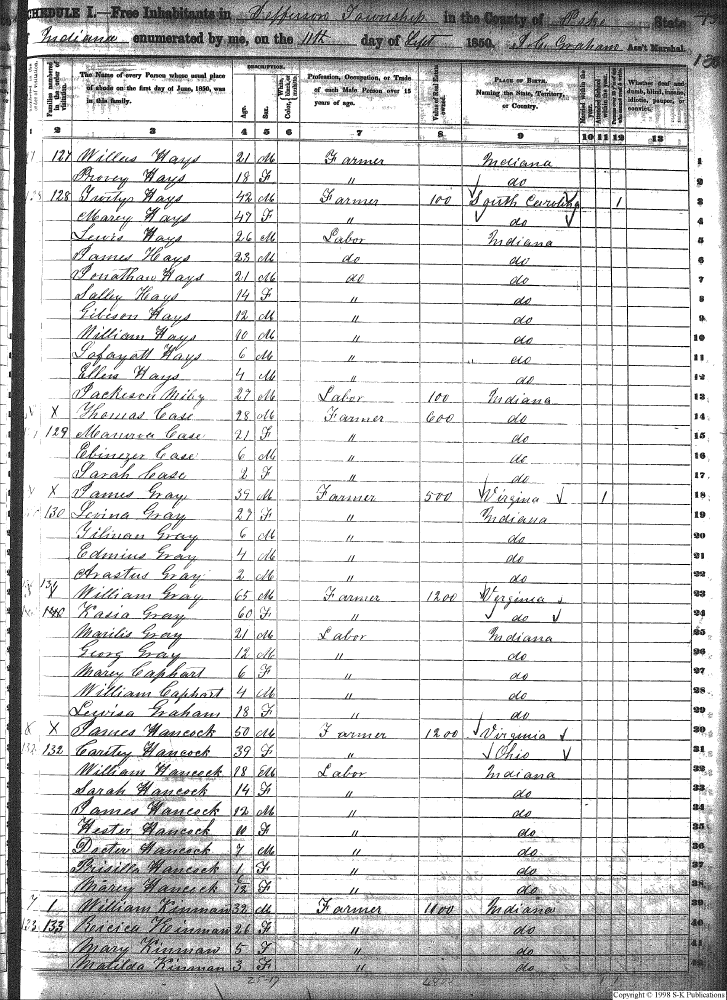 SCHEDULE I.—Free Inhabitants in Jefferson Township in the County of Pike State
Indiana enumerated by me, on the 11th day of Sept 1850. Graham Ass't Marshal.
DESCRIPTION.
Families numbered in the order of visitation.
The Name of every Person whose usual place of abode on the first day of June, 1850, was in this family.
Age.
Sex.
White, Color, black, or mulatto.
Profession, Occupation, or Trade of each Male Person over 15 years of age.
Value of Real Estate owned.
PLACE OF BIRTH. Naming the State, Territory, or Country.
Married within the year.
Whether deaf and dumb, blind, insane, idiotic, pauper, or convict.
1 2 3 4 5 6 7 8 9 10 11 12 13
127 Willus Hays 21 M Farmer Indiana 1
Hays 18 F do 2
128 Hays 42 M Farmer 100 South Carolina 1 3
Marey Hays 47 F " do 4
Lewis Hays 26 M Labor Indiana 5
James Hays 23 M do do 6
Jonathan Hays 21 M do do 7
Salley Hays 14 F " do 8
Gibison Hays 12 M " do 9
William Hays 10 M " do 10
Lafayatt Hays 6 M " do 11
Ellis Hays 4 M " do 12
Jackeson Miby 27 M Labor 100 Indiana 13
X Thomas Case 28 M Farmer 600 do 14
129 Manerva Case 21 F " do 15
Ebinezer Case 6 M " do 16
Sarah Case 2 F " do 17
X James Gray 39 M Farmer 500 Virginia 1 18
130 Levina Gray 27 F " Indiana 19
Tilman Gray 6 M " do 20
Edmius Gray 4 M " do 21
Arastus Gray 2 M " do 22
William Gray 65 M Farmer 1200 Verginia 23
140 Kasia Gray 60 F " do 24
Marilis Gray 21 M Labor Indiana 25
Georg Gray 12 M " do 26
Marey Caphart 6 F " do 27
William Caphart 4 M " do 28
Lewisa Graham 18 F " do 29
X X James Hancock 50 M Farmer 1200 Virginia 30
132 132 Caritey Hancock 39 F " Ohio 31
William Hancock 18 M Labor Indiana 32
Sarah Hancock 14 F " do 33
James Hancock 12 M " do 34
Hester Hancock 10 F " do 35
Docter Hancock 7 M " do 36
Prisilla Hancock 1 F " do 37
Marey Hancock 12 F " do 38
William Kinman 32 M Farmer 1100 Indiana 39
133 133 Kinman 26 F " do 40
Mary Kinman 5 F " do 41
Matilda Kinman 3 F " do 42
Copyright © 1998 S-K Publications